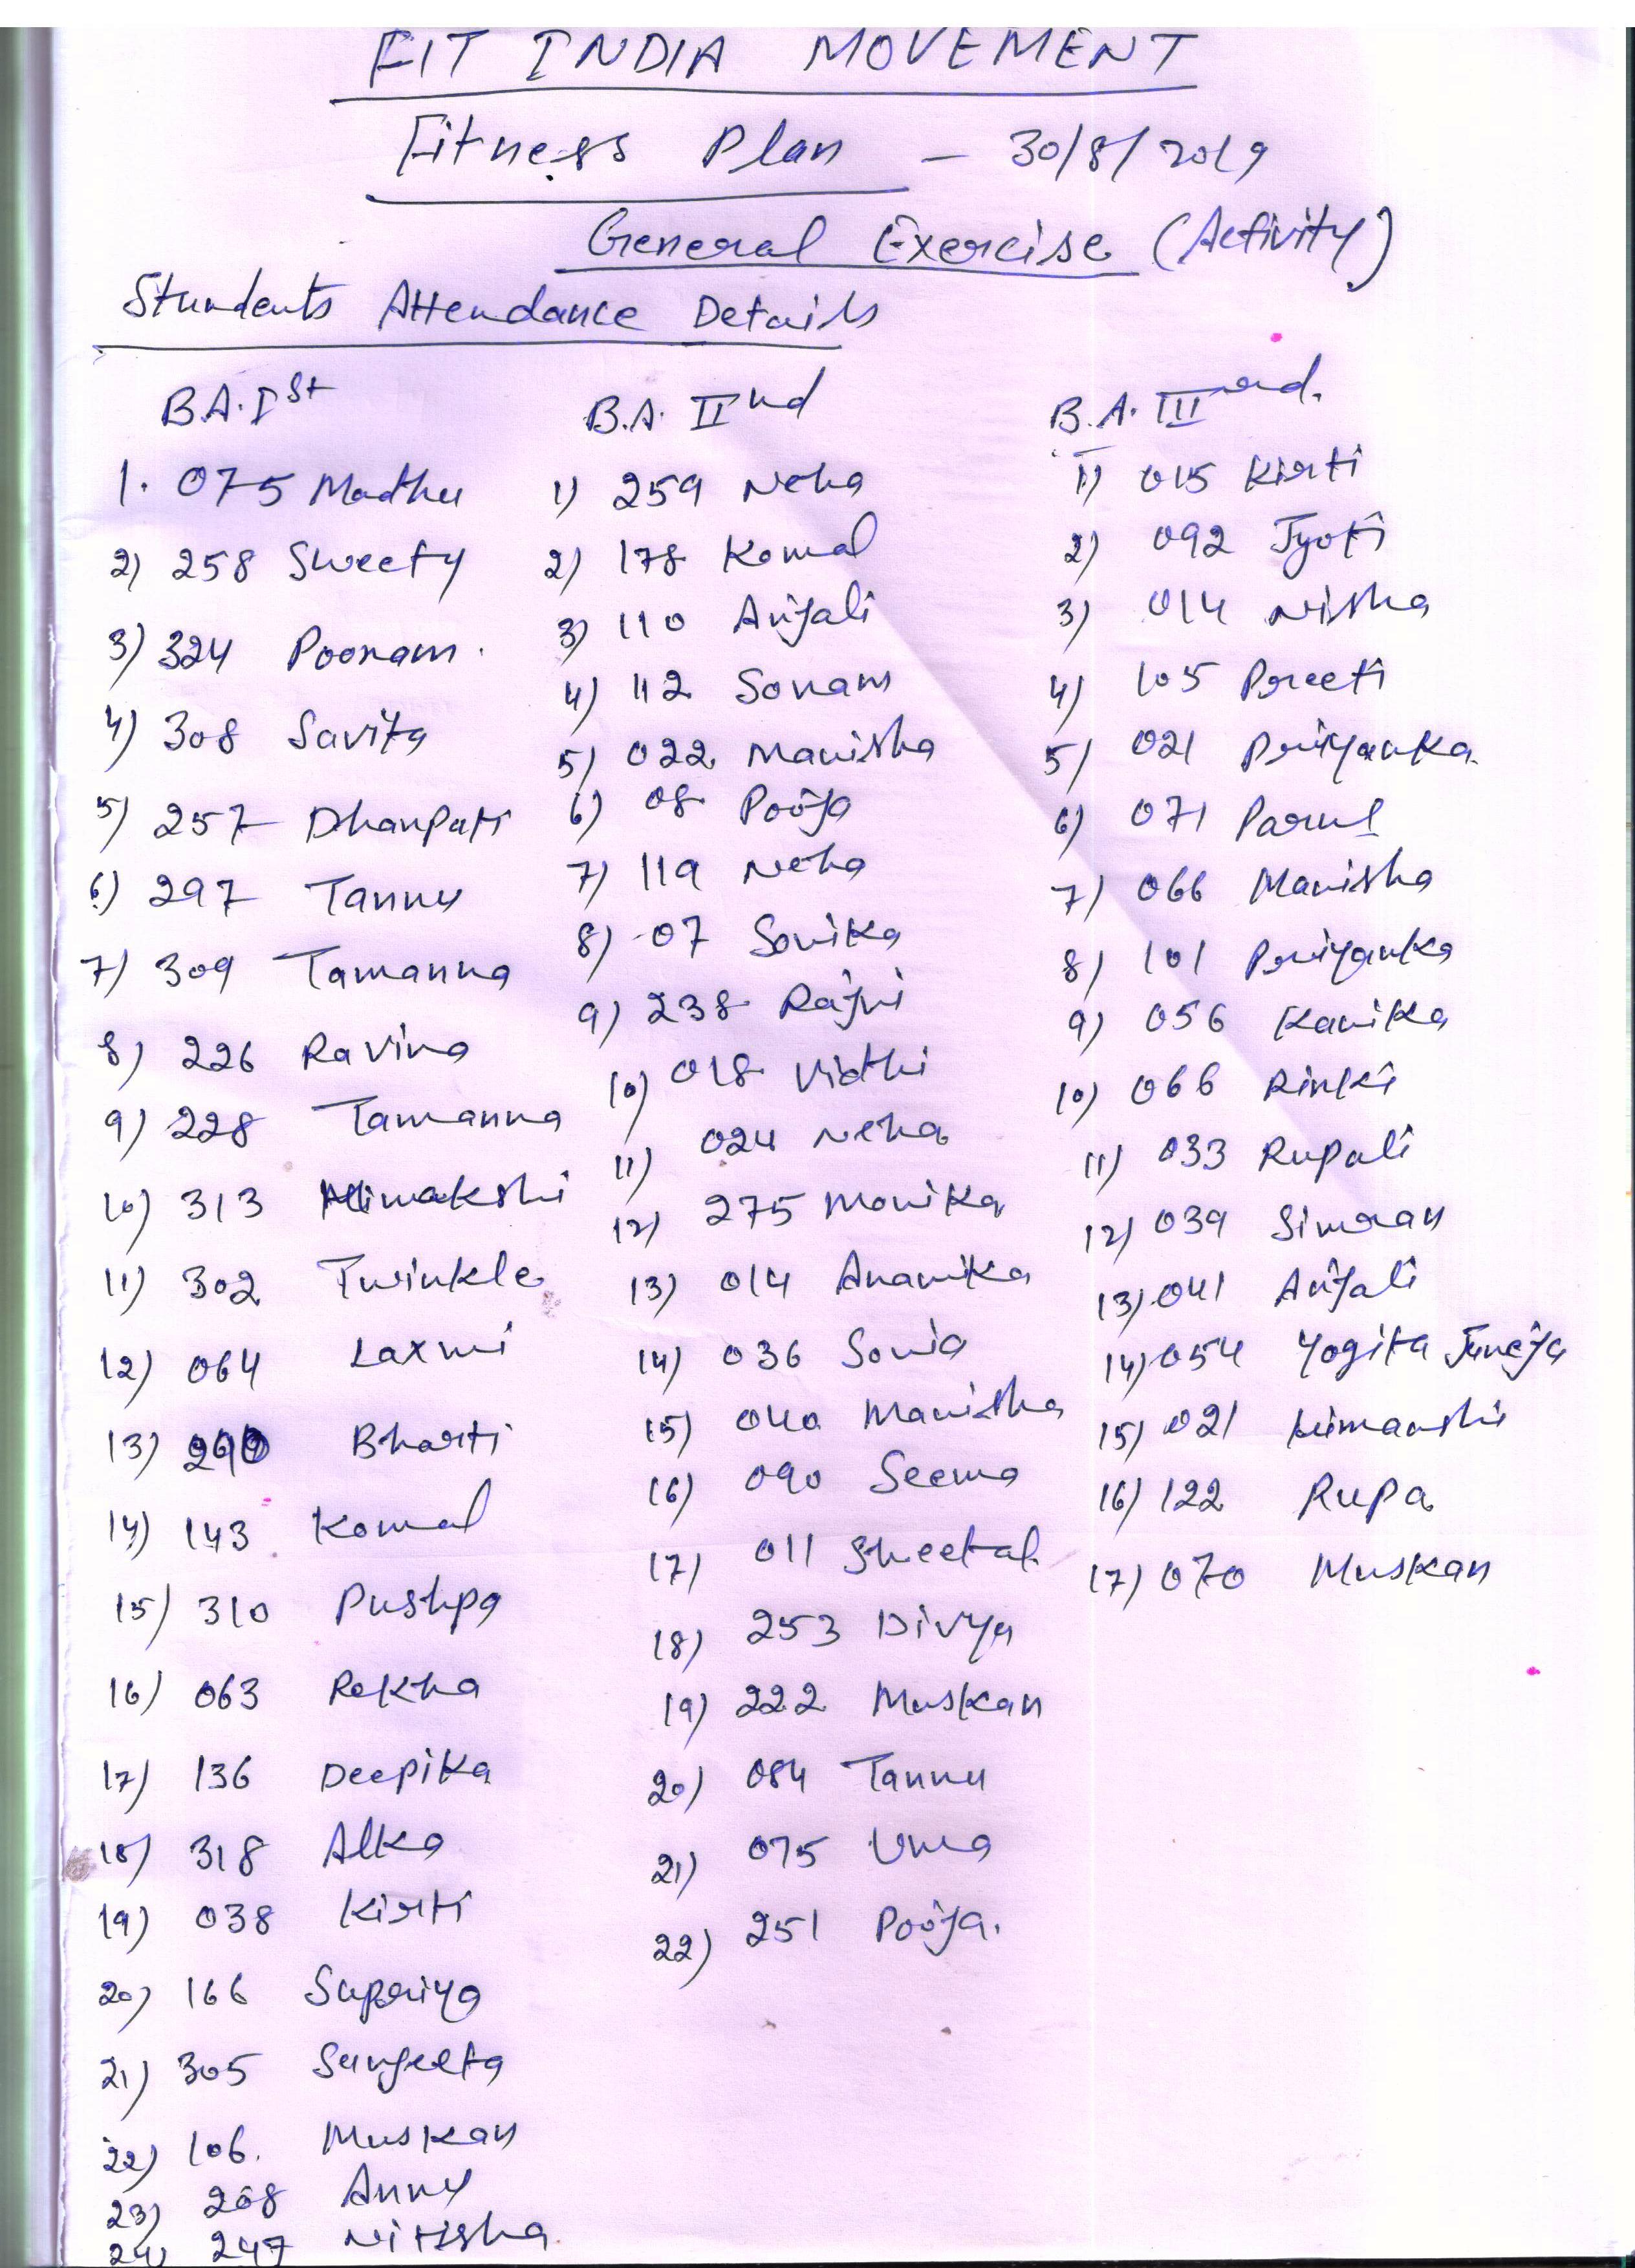 FIT INDIA MOVEMENT
Fitness Plan - 30/8/2019
General Exercise (Activity)
Stundents Attendance Details
B.A. Ist
1. 075 Madhu
2) 258 Sweety
3) 324 Poonam.
4) 308 Savita
5) 257 Dhanpati
6) 297 Tannu
7) 309 Tamanna
8) 226 Ravina
9) 228 Tamanna
10) 313 Minakshi
11) 302 Twinkle
12) 064 Laxmi
13) Bharti
14) 143 Komal
15) 310 Pushpa
16) 063 Rekha
17) 136 Deepika
18) 318 Alka
19) 038 Kirti
20) 166 Supriya
21) 305 Sangeeta
22) 106. Muskan
23) 208 Annu
24) 247 Nitisha
B.A. IInd
1) 259 Neha
2) 178 Komal
3) 110 Anjali
4) 112 Sonam
5) 022 Manisha
6) 08 Pooja
7) 119 Neha
8) 07 Sonika
9) 238 Rajni
10) 018 Vidhi
11) 024 Neha
12) 275 Monika
13) 014 Anamika
14) 036 Sonia
15) 040 Manisha
16) 090 Seema
17) 011 Sheetal
18) 253 Divya
19) 222 Muskan
20) 084 Tannu
21) 075 Uma
22) 251 Pooja.
B.A. IIIrd.
1) 015 Kirti
2) 092 Jyoti
3) 014 Nisha
4) 105 Preeti
5) 021 Priyanka
6) 071 Parul
7) 066 Manisha
8) 101 Priyanka
9) 056 Kanika
10) 066 Rinki
11) 033 Rupali
12) 039 Simran
13) 041 Anjali
14) 054 Yogita Juneja
15) 021 Himanshi
16) 122 Rupa
17) 070 Muskan